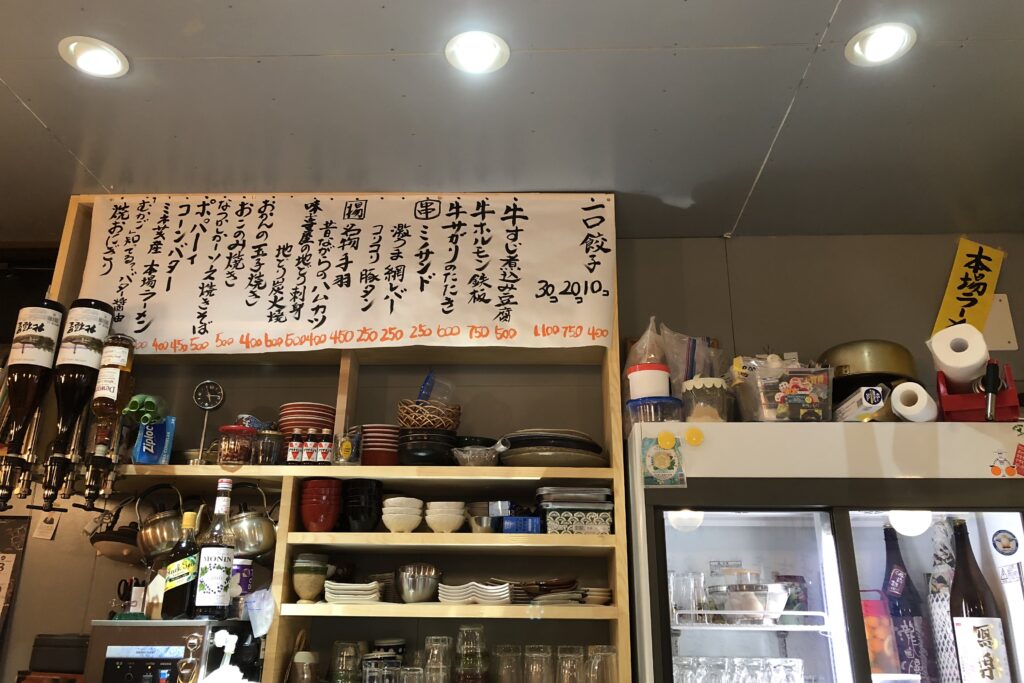 一口餃子
30コ 20コ 10コ
1.100 750 400
牛すじ煮込み豆腐 500
牛ホルモン鉄板 750
牛サガリのたたき 600
串
ミノサンド 250
激うま網レバー 250
コリコリ豚タン 250
揚
名物手羽 450
昔ながらのハムカツ 400
地どり刺身 500
地どり炭火焼 600
おめんの玉子焼き 400
おこのみ焼き 500
なつかしかーソース焼きそば 500
ポパーイ 450
コーンバター 400
本場ラーメン
焼おにぎり
本場ラーメ
Ziploc
MONIN
Dewar's
写楽